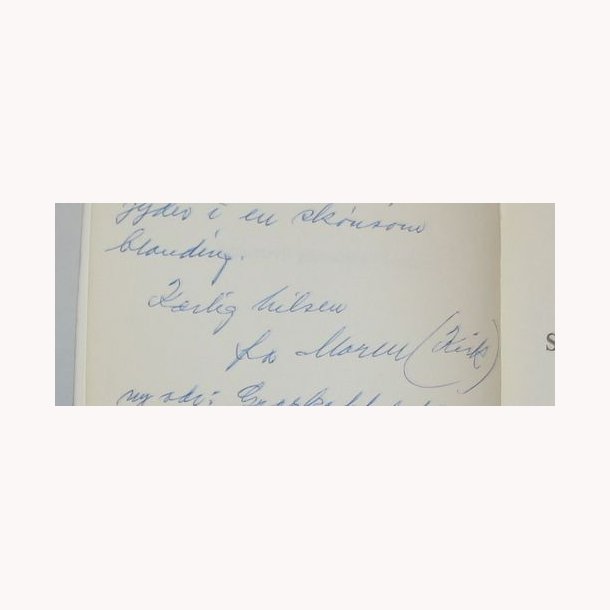 jyder i en skønsom
blanding.
Kærlig hilsen
fra Maren (Kirk)
ny adr:
S